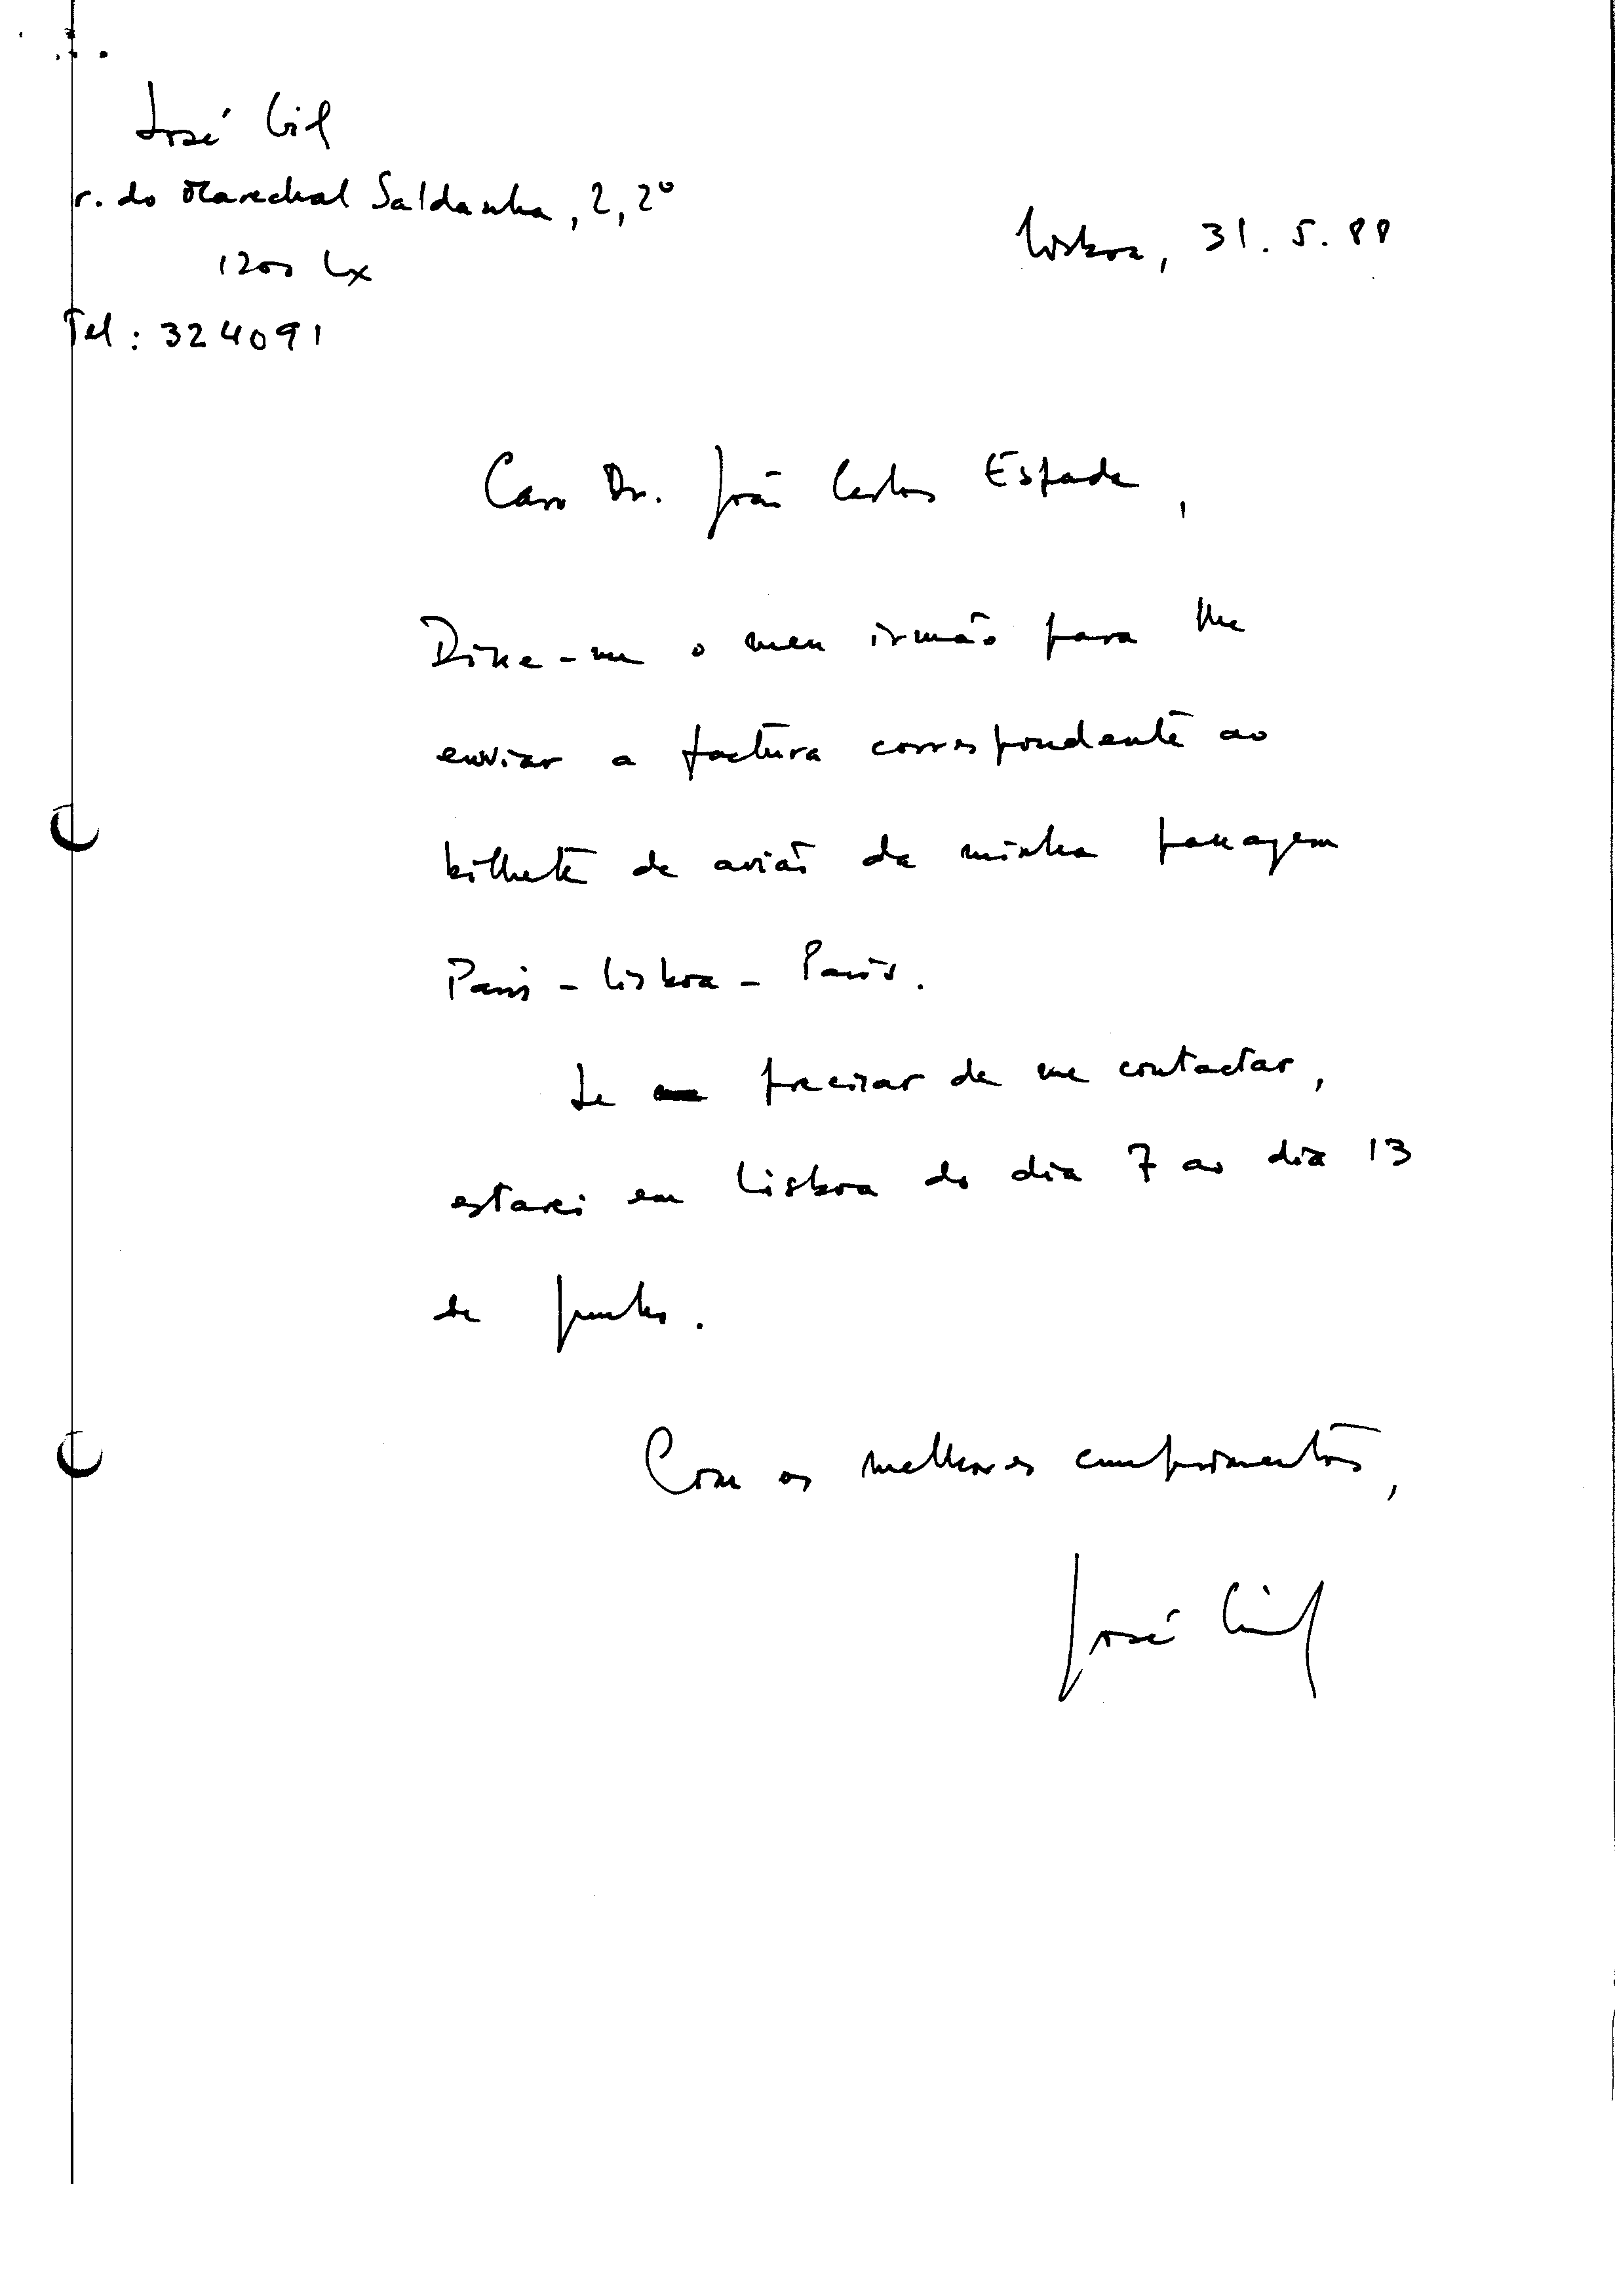 José Gil
r. do Marechal Saldanha, 2, 2º
1200 Lx
Tel: 324091
Lisboa, 31.5.88
Caro Dr. João Carlos Espada,
Disse-me o meu irmão para lhe
enviar a factura correspondente ao
bilhete de avião da minha passagem
Paris - Lisboa - Paris.
Se precisar de me contactar,
estarei em Lisboa do dia 7 ao dia 13
de Junho.
Com os melhores cumprimentos,
José Gil